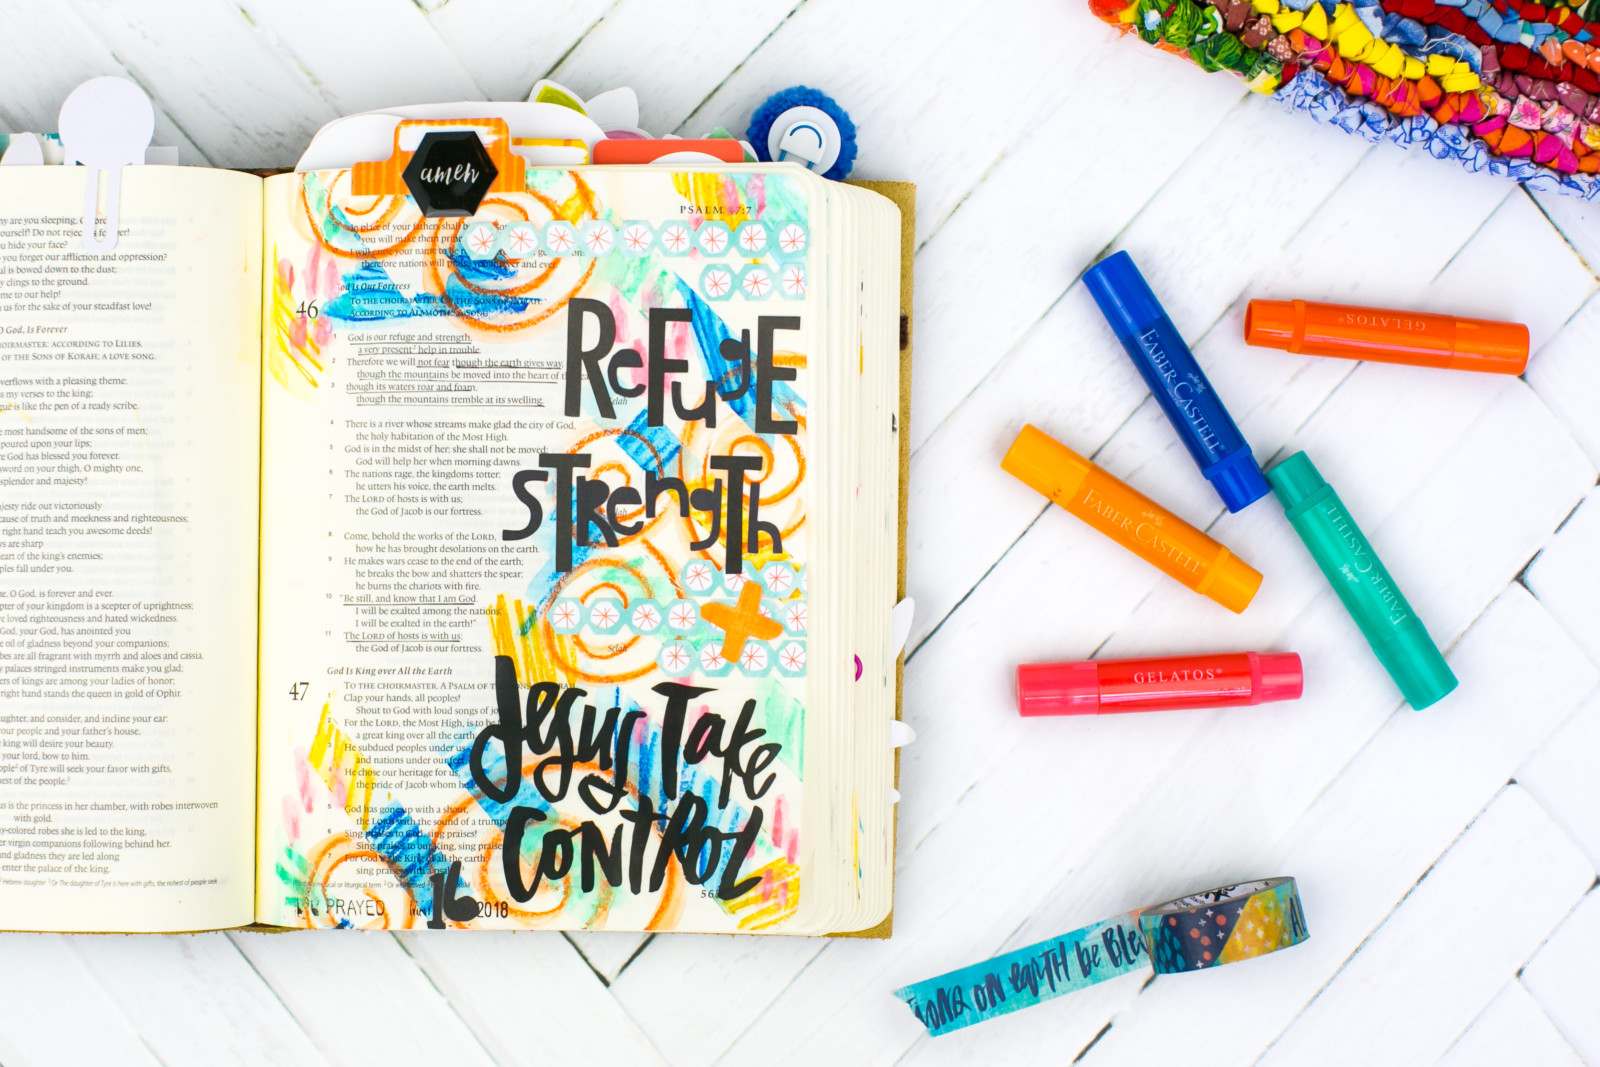 hy are you sleeping, O Lord?
ourself! Do not reject us forever!
u hide your face?
you forget our affliction and oppression?
l is bowed down to the dust;
y clings to the ground.
me to our help!
us for the sake of your steadfast love!
O God, Is Forever
HOIRMASTER: ACCORDING TO LILIES.
OF THE SONS OF KORAH; A LOVE SONG.
verflows with a pleasing theme;
s my verses to the king;
gue is like the pen of a ready scribe.
e most handsome of the sons of men;
poured upon your lips;
re God has blessed you forever.
sword on your thigh, O mighty one,
splendor and majesty!
jesty ride out victoriously
cause of truth and meekness and righteousness;
right hand teach you awesome deeds!
ws are sharp
eart of the king's enemies;
ples fall under you.
e, O God, is forever and ever.
pter of your kingdom is a scepter of uprightness;
e loved righteousness and hated wickedness.
God, your God, has anointed you
e oil of gladness beyond your companions;
bes are all fragrant with myrrh and aloes and cassia.
y palaces stringed instruments make you glad;
ers of kings are among your ladies of honor;
right hand stands the queen in gold of Ophir.
ughter, and consider, and incline your ear:
our people and your father's house,
king will desire your beauty.
your lord, bow to him.
ople² of Tyre will seek your favor with gifts,
hest of the people.³
us is the princess in her chamber, with robes interwoven
with gold.
y-colored robes she is led to the king,
er virgin companions following behind her.
and gladness they are led along
enter the palace of the king.
Hebrew daughter ³ Or The daughter of Tyre is here with gifts, the richest of people seek
amen
PSALM 47:7
In place of your fathers shall be
you will make them princes
I will cause your name to be
therefore nations will praise you forever and ever
God Is Our Fortress
46 TO THE CHOIRMASTER. OF THE SONS OF KORAH.
ACCORDING TO ALAMOTH. A SONG.
1 God is our refuge and strength,
a very present² help in trouble.
2 Therefore we will not fear though the earth gives way,
though the mountains be moved into the heart of the sea,
3 though its waters roar and foam,
though the mountains tremble at its swelling. Selah
4 There is a river whose streams make glad the city of God,
the holy habitation of the Most High.
5 God is in the midst of her; she shall not be moved;
God will help her when morning dawns.
6 The nations rage, the kingdoms totter;
he utters his voice, the earth melts.
7 The LORD of hosts is with us;
the God of Jacob is our fortress.
8 Come, behold the works of the LORD,
how he has brought desolations on the earth.
9 He makes wars cease to the end of the earth;
he breaks the bow and shatters the spear;
he burns the chariots with fire.
10 "Be still, and know that I am God.
I will be exalted among the nations,
I will be exalted in the earth!"
11 The LORD of hosts is with us;
the God of Jacob is our fortress. Selah
God Is King over All the Earth
47 TO THE CHOIRMASTER. A PSALM OF THE SONS OF KORAH.
Clap your hands, all peoples!
Shout to God with loud songs of jo
2 For the LORD, the Most High, is to be
a great king over all the earth.
3 He subdued peoples under us,
and nations under our feet.
4 He chose our heritage for us,
the pride of Jacob whom he
5 God has gone up with a shout,
the LORD with the sound of a trumpe
6 Sing praises to God, sing praises!
Sing praises to our King, sing praises
7 For God is the King of all the earth;
sing praises with a psalm!
REFUGE
STRENGTH
Jesus Take
Control
PRAYED MAY 16 2018
FABER-CASTELL
GELATOS®
FABER-CASTELL
FABER-CASTELL
GELATOS®
ON EARTH be Ble